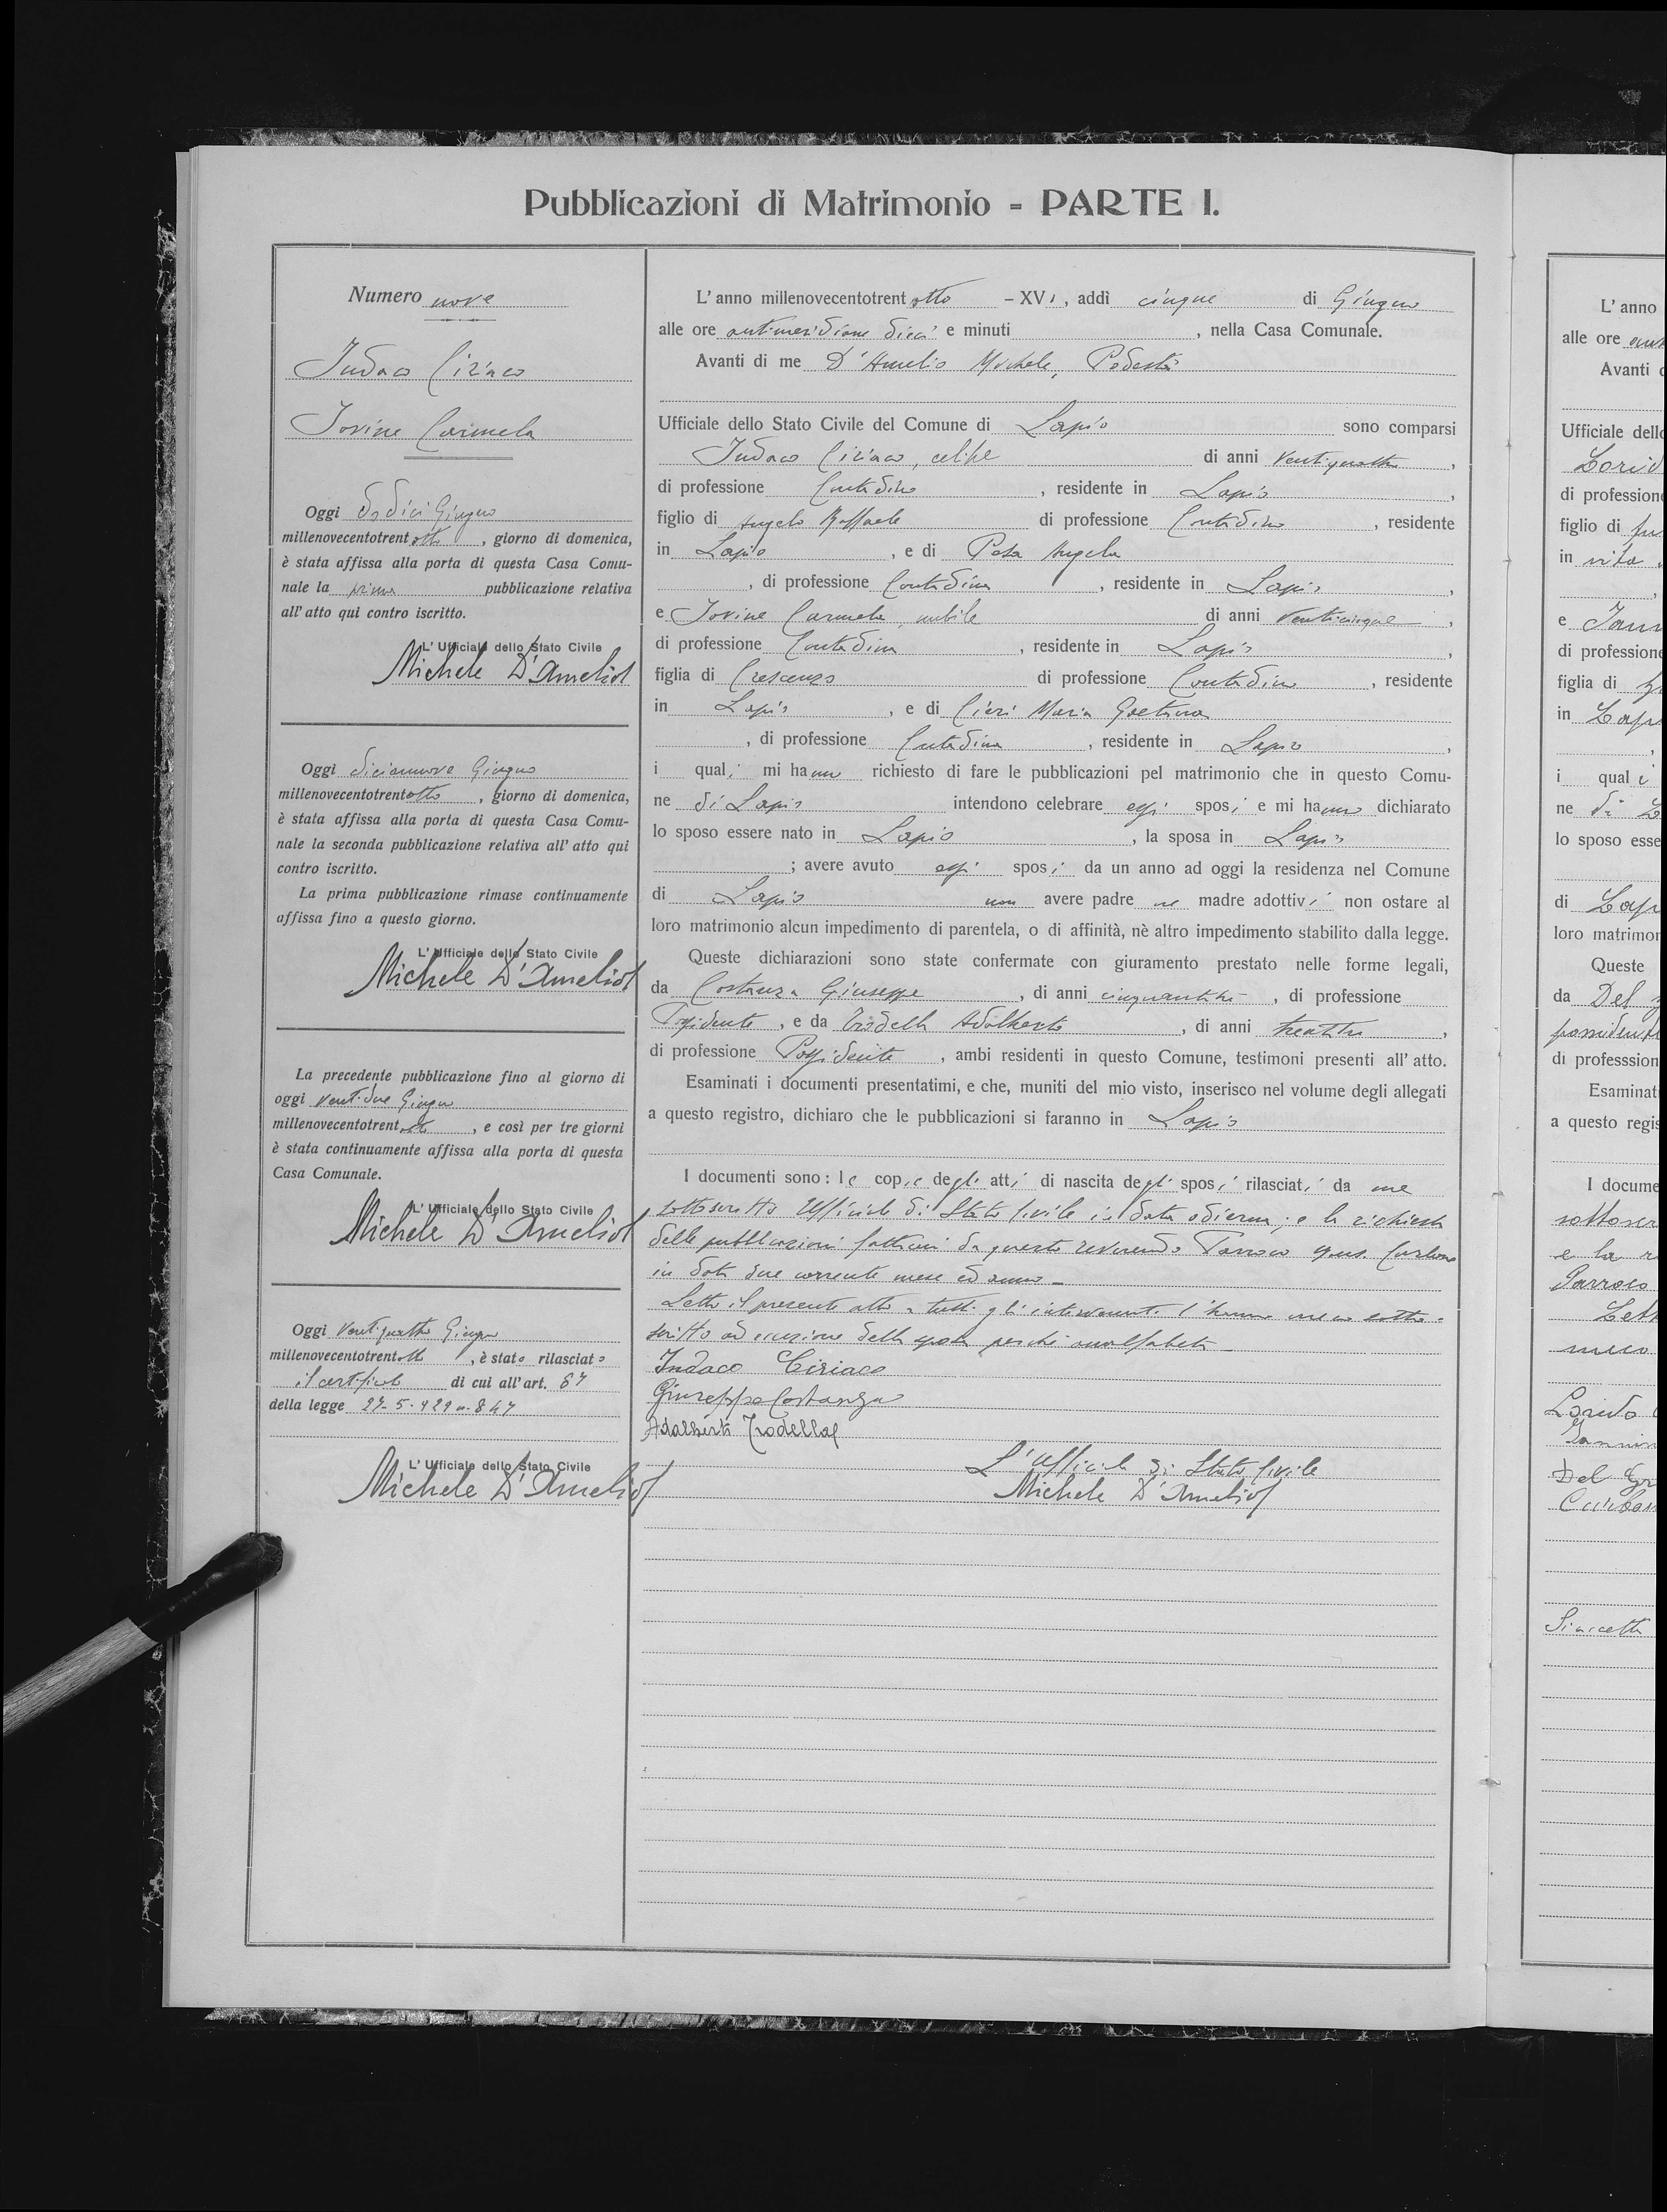 Pubblicazioni di Matrimonio - PARTE I.
Numero nove
Indaco Ciriaco
Iovine Carmela
Oggi dodici Giugno
millenovecentotrentotto, giorno di domenica,
è stata affissa alla porta di questa Casa Comu-
nale la prima pubblicazione relativa
all'atto qui contro iscritto.
L'Ufficiale dello Stato Civile
Michele D'Amelio
Oggi diciannove Giugno
millenovecentotrentotto, giorno di domenica,
è stata affissa alla porta di questa Casa Comu-
nale la seconda pubblicazione relativa all'atto qui
contro iscritto.
La prima pubblicazione rimase continuamente
affissa fino a questo giorno.
L'Ufficiale dello Stato Civile
Michele D'Amelio
La precedente pubblicazione fino al giorno di
oggi ventidue Giugno
millenovecentotrentotto, e così per tre giorni
è stata continuamente affissa alla porta di questa
Casa Comunale.
L'Ufficiale dello Stato Civile
Michele D'Amelio
Oggi ventiquattro Giugno
millenovecentotrentotto, è stato rilasciato
il certificato di cui all'art. 87
della legge 27-5-929 n. 847
L'Ufficiale dello Stato Civile
Michele D'Amelio
L'anno millenovecentotrentotto - XVI, addì cinque di Giugno
alle ore antimeridiane dieci e minuti , nella Casa Comunale.
Avanti di me D'Amelio Michele, Podestà
Ufficiale dello Stato Civile del Comune di Lapio sono comparsi
Indaco Ciriaco, celibe di anni ventiquattro,
di professione Contadino, residente in Lapio,
figlio di Angelo Raffaele di professione Contadino, residente
in Lapio, e di Angela
, di professione Contadina, residente in Lapio,
e Iovine Carmela, nubile di anni venticinque,
di professione Contadina, residente in Lapio,
figlia di Crescenzo di professione Contadino, residente
in Lapio, e di Cieri Maria Gaetana
, di professione Contadina, residente in Lapio,
i quali mi hanno richiesto di fare le pubblicazioni pel matrimonio che in questo Comu-
ne di Lapio intendono celebrare essi sposi e mi hanno dichiarato
lo sposo essere nato in Lapio, la sposa in Lapio
; avere avuto essi sposi da un anno ad oggi la residenza nel Comune
di Lapio non avere padre ne madre adottivi non ostare al
loro matrimonio alcun impedimento di parentela, o di affinità, nè altro impedimento stabilito dalla legge.
Queste dichiarazioni sono state confermate con giuramento prestato nelle forme legali,
da Costanza Giuseppe, di anni cinquantatre, di professione
Possidente, e da Adalberto, di anni trentatre,
di professione Possidente, ambi residenti in questo Comune, testimoni presenti all'atto.
Esaminati i documenti presentatimi, e che, muniti del mio visto, inserisco nel volume degli allegati
a questo registro, dichiaro che le pubblicazioni si faranno in Lapio
I documenti sono: le copie degli atti di nascita degli sposi rilasciati da me
sottoscritto Ufficiale di Stato Civile in data odierna; e la richiesta
delle pubblicazioni fattami da questo reverendo Parroco Carbone
in data due corrente mese ed anno -
Letto il presente atto a tutti gli intervenuti l'hanno meco sotto-
scritto ad eccezione della sposa perchè analfabeta -
Indaco Ciriaco
Giuseppe Costanza
L'Ufficiale di Stato Civile
Michele D'Amelio
L'anno
alle ore
Avanti
Ufficiale dello
di professione
figlio di
in vita
e
di professione
figlia di
in
i quali
ne di
lo sposo esse
di
loro matrimon
Queste
da Del
possidente
di professione
Esaminati
a questo regis
I docume
sottoscr
e la
Parroco
meco
Lorido
Del